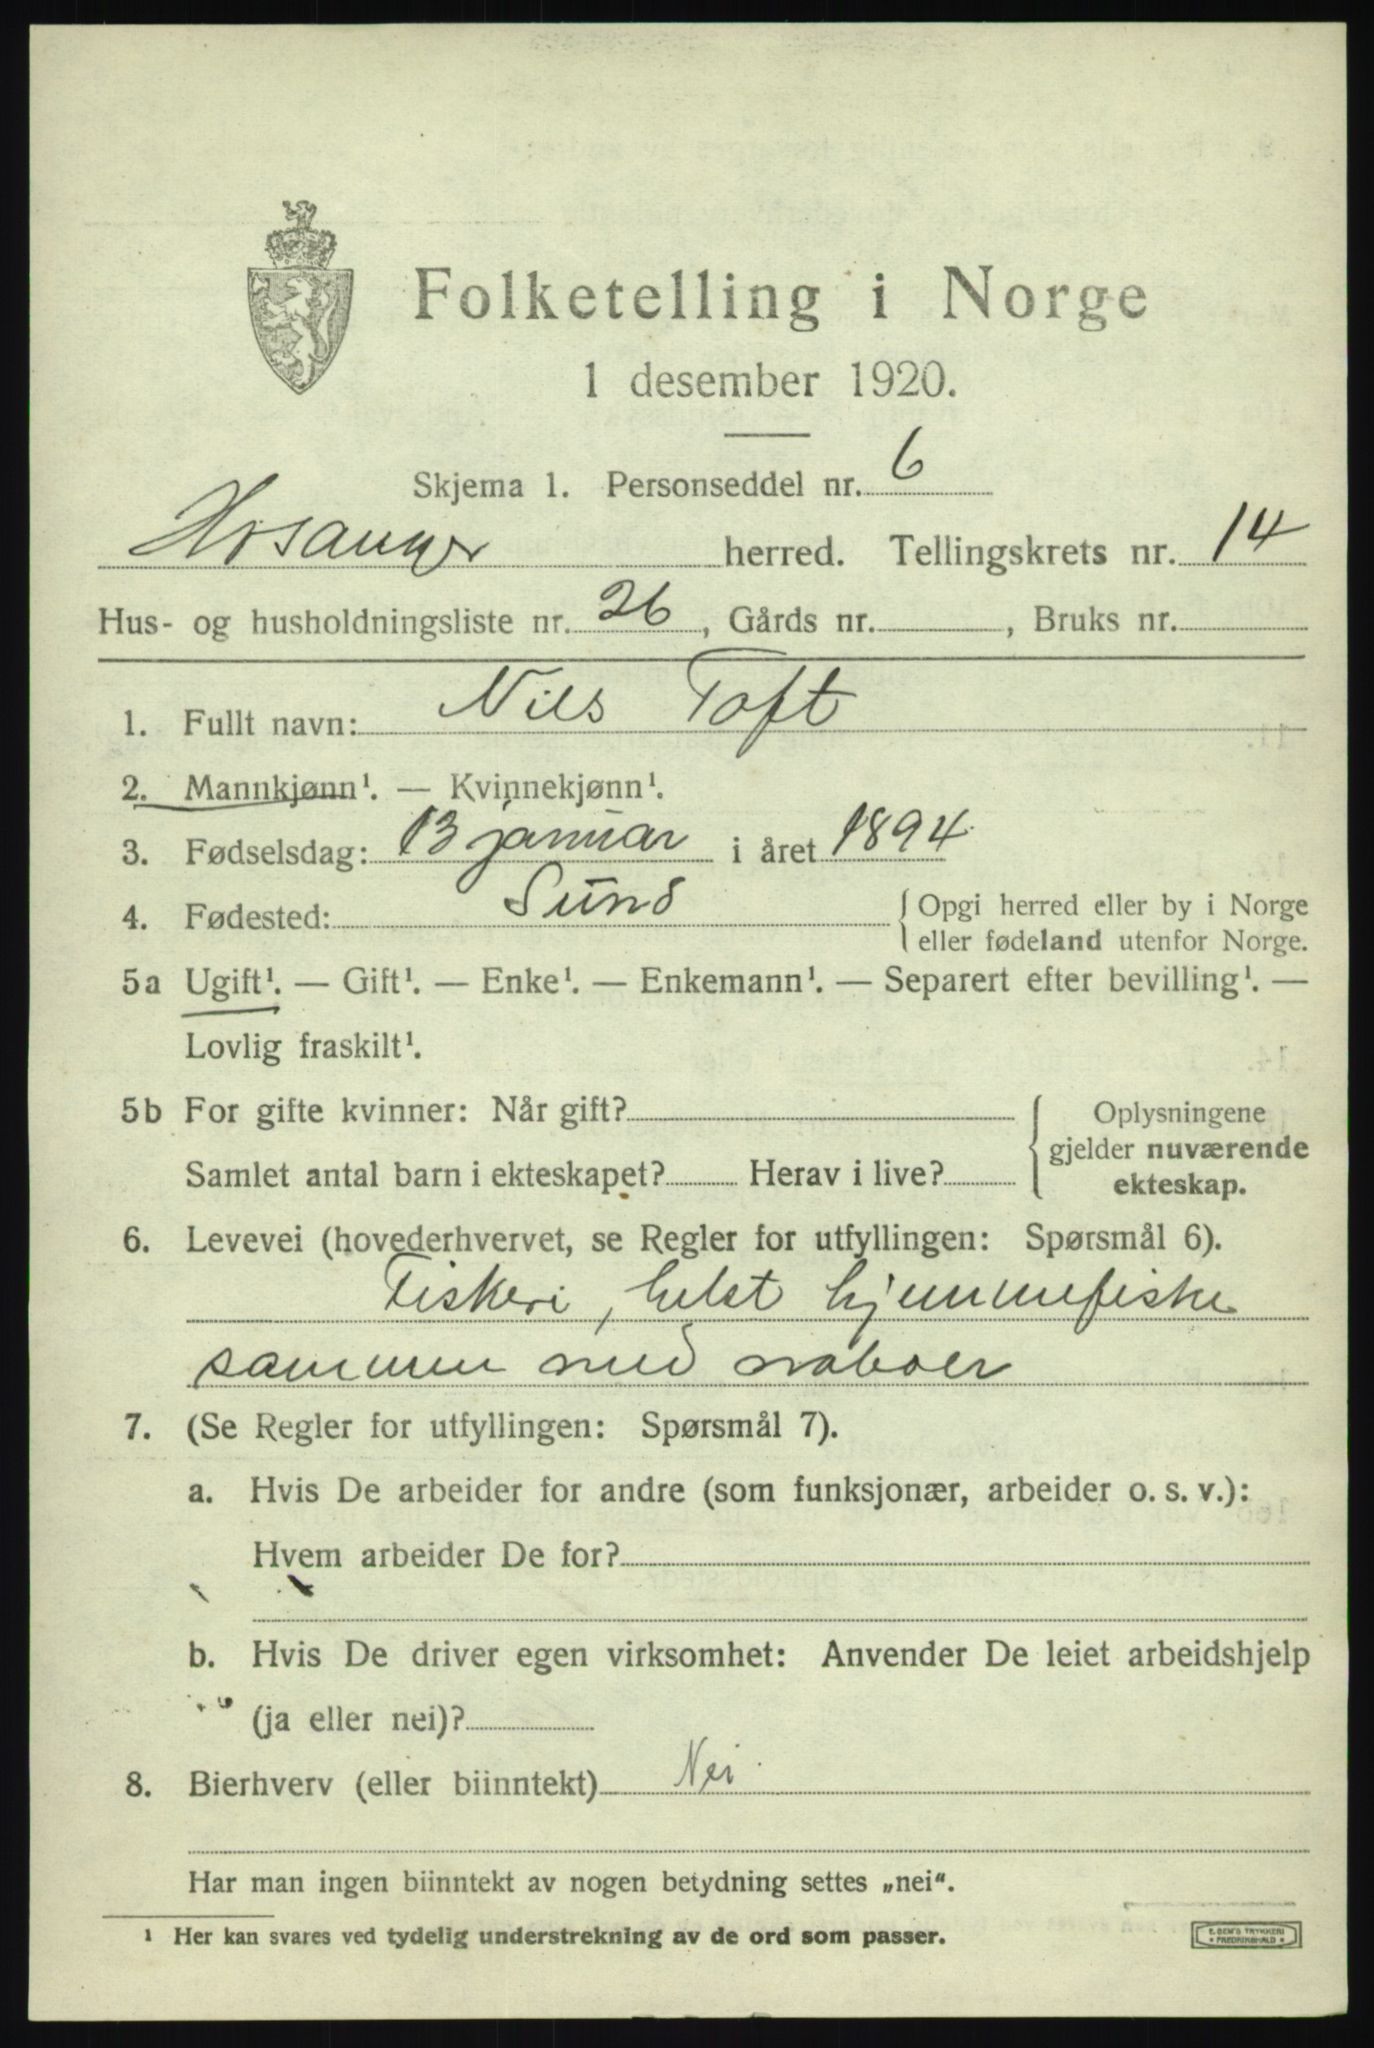 Folketelling i Norge
1 desember 1920.
Skjema 1. Personseddel nr. 6
Hosanger herred. Tellingskrets nr. 14
Hus- og husholdningsliste nr. 26, Gårds nr. , Bruks nr.
1. Fullt navn: Nils Toft
2. Mannkjønn¹. — Kvinnekjønn¹.
3. Fødselsdag: 13 januar i året 1894.
4. Fødested: Sund { Opgi herred eller by i Norge
eller fødeland utenfor Norge.
5a Ugift¹. — Gift¹. — Enke¹. — Enkemann¹. — Separert efter bevilling¹. —
Lovlig fraskilt¹.
5b For gifte kvinner: Når gift? { Oplysningene
gjelder nuværende
Samlet antal barn i ekteskapet? Herav i live? ekteskap.
6. Levevei (hovederhvervet, se Regler for utfyllingen: Spørsmål 6).
Fiskeri, helst hjemmefiske
sammen med naboer
7. (Se Regler for utfyllingen: Spørsmål 7).
a. Hvis De arbeider for andre (som funksjonær, arbeider o. s. v.):
Hvem arbeider De for?
b. Hvis De driver egen virksomhet: Anvender De leiet arbeidshjelp
(ja eller nei)?
8. Bierhverv (eller biinntekt) Nei
Har man ingen biinntekt av nogen betydning settes „nei“.
¹ Her kan svares ved tydelig understrekning av de ord som passer.
E. SEM'S TRYKKERI
FREDRIKSHALD